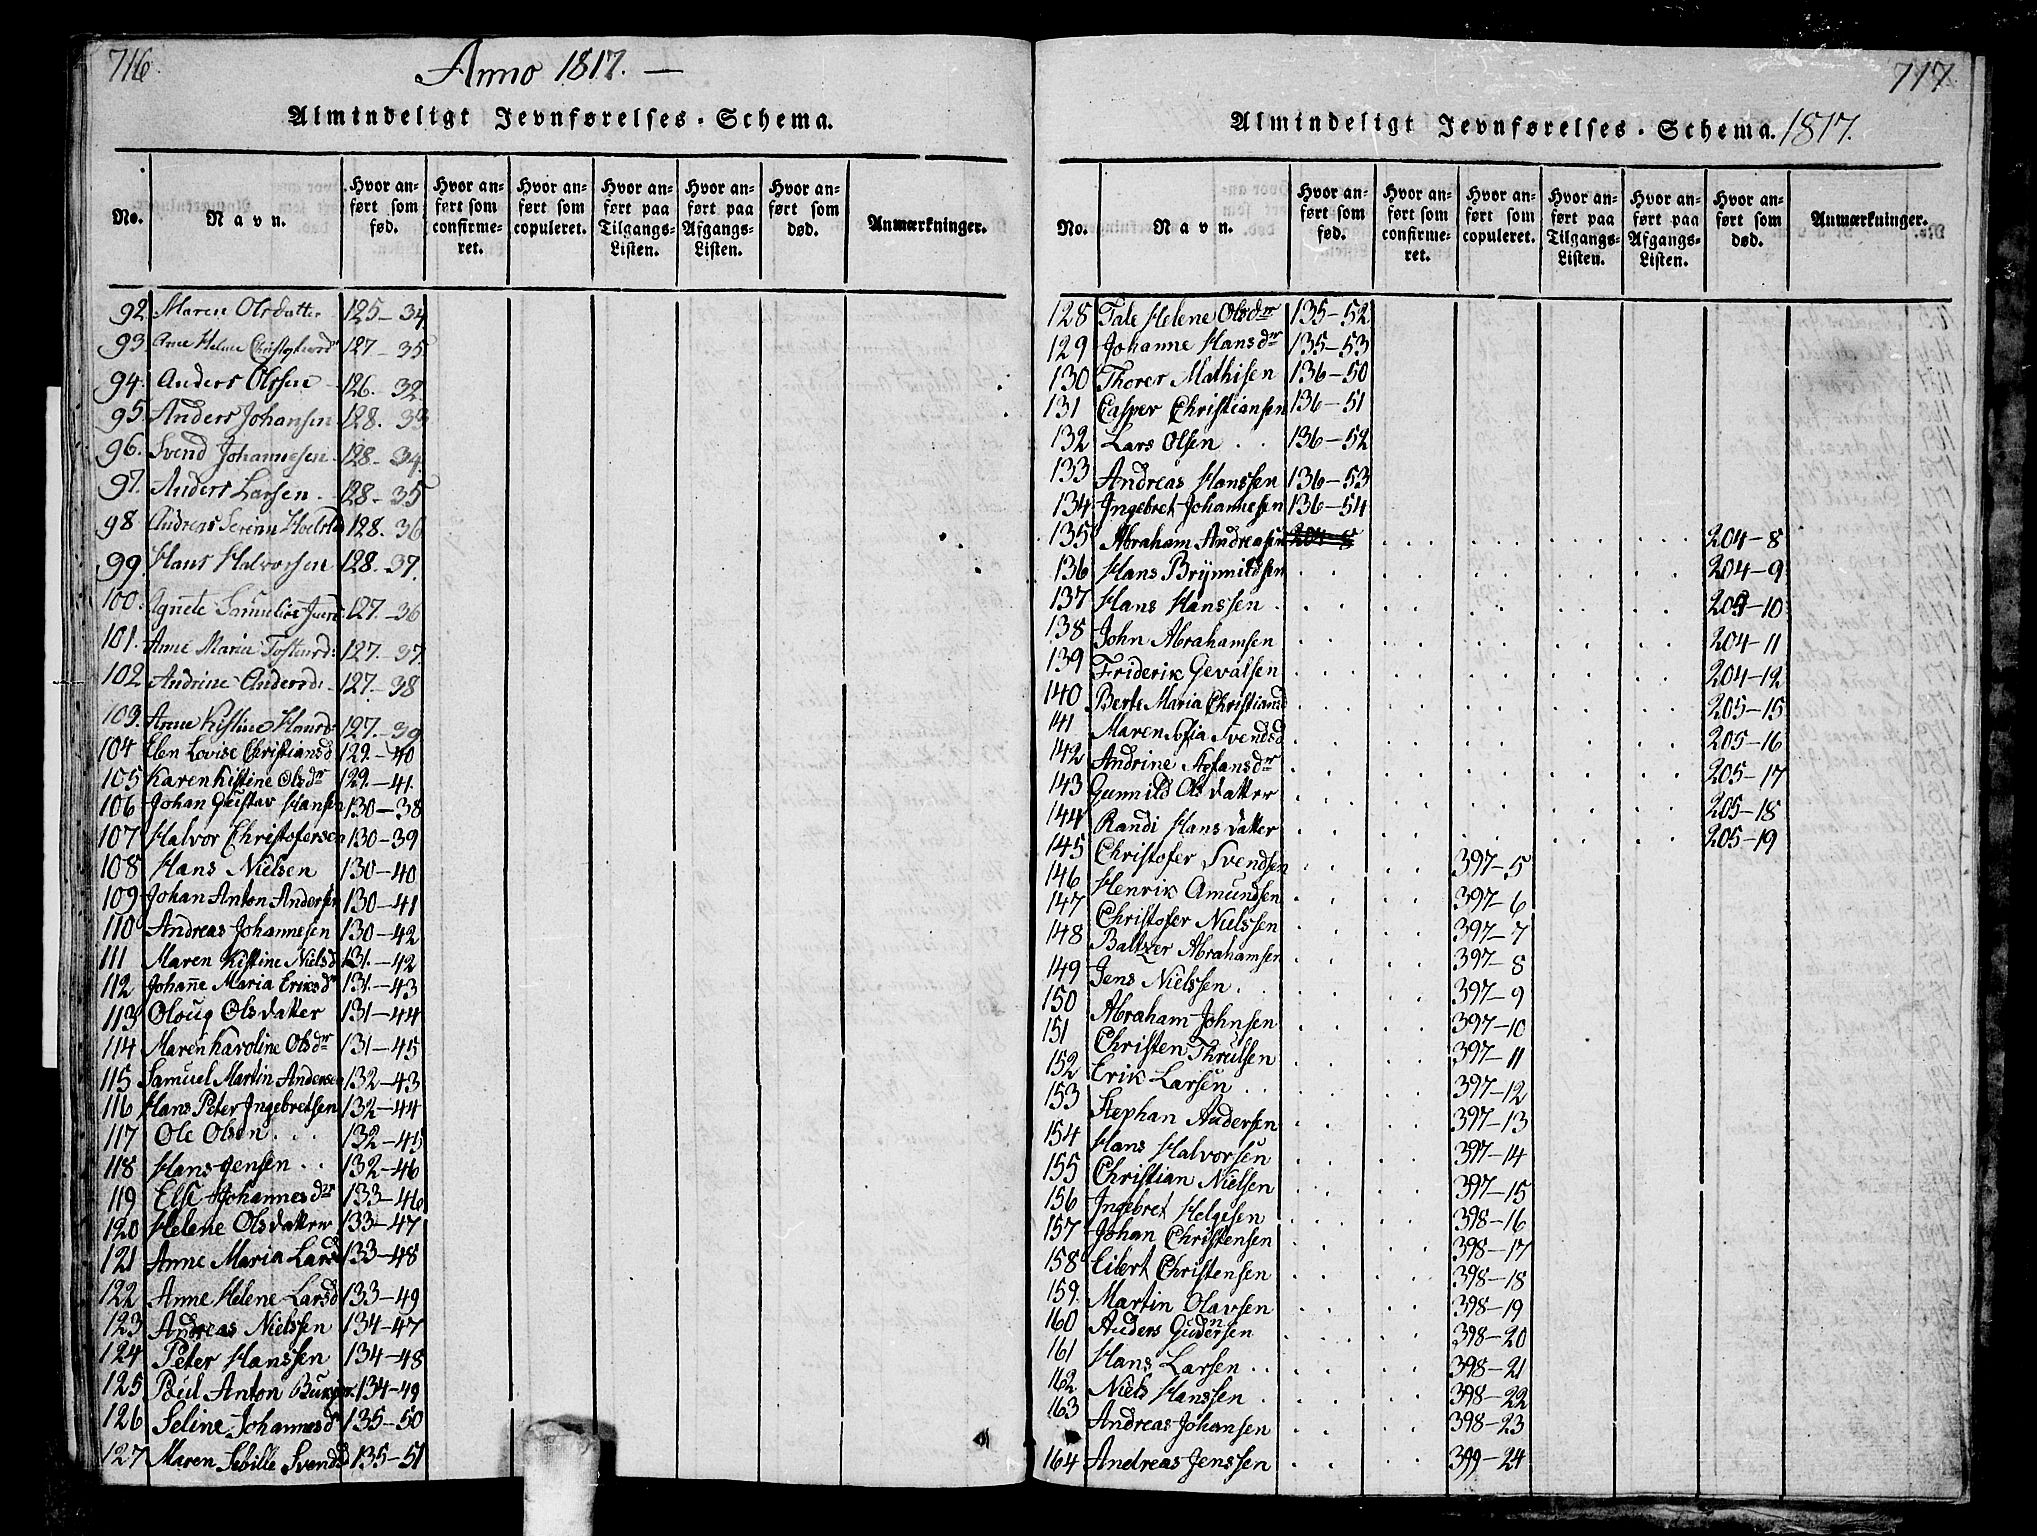 716
Anno 1817. —
Almindeligt Jevnførelses-Schema.
No. Navn. Hvor anført som fød. Hvor anført som confirmeret. Hvor anført som copuleret. Hvor anført paa Tilgangs-Listen. Hvor anført paa Afgangs-Listen. Hvor anført som død. Anmærkninger.
92 Maren Olsdatter 125-34
93 Anne Helene Christophersd 127-35
94. Anders Olssen 126-32
95. Anders Johansen 128. 33
96. Svend Johannesen 128-34
97. Anders Larsen 128-35
98 Andreas 128. 36
99. Hans Halvorsen 128. 37.
100. Agnete 127-36
101. Anne Maria 127-37.
102 Andrine Andersd: 127-38
103. Anne Kistine Hansd: 127-39
104 Elen Lovise Christiansd 129-40
105 Karen Kistine Olsdr 129.-41.
106 Johan Gustav Hansen 130-38
107 Halvor Christofersen 130-39
108 Hans Nielsen 130-40
109 Johan Anton Andersen 130-41
110 Andreas Johannesen 130-42
111 Maren Kistine Nielsd 131.-42
112 Johañe Maria Eriksdr 131.-43
113 Oloug Olsdatter 131-44
114 Maren Karoline Olsdr 131-45
115 Samuel Martin Andersen 132-43
116 Hans Peter Ingebretsen 132-44
117 Ole Olsen 132-45
118 Hans Jensen . . 132-46
119 Else Johannesdr 133-46
120 Helene Olsdatter 133-47
121 Anne Maria Larsd 133-48
122 Anne Helene Larsd 133-49
123 Andreas Nielssen 134-47
124 Peter Hanssen 134-48
125 Poul Anton 134-49
126 Seline Johannesd 135-50
127 Maren Sebille Svendsd 135-51
717
Almindeligt Jevnførelses-Schema. 1817.
No. Navn. Hvor anført som fød. Hvor anført som confirmeret. Hvor anført som copuleret. Hvor anført paa Tilgangs-Listen. Hvor anført paa Afgangs-Listen. Hvor anført som død. Anmærkninger.
128 Tale Helene Olsdr 135-52
129 Johanne Hansdr 135-53
130 Thorer Mathisen 136-50
131 Casper Christiansen 136-51
132 Lars Olsen . . 136-52
133 Andreas Hanssen 136-53
134 Ingebret Johannesen 136-54
135 Abraham Andreasen 204-8 204-8
136 Hans Brynnildsen 204-9
137 Hans Hanssen 204-10
138 John Abrahamsen 204-11
139 Friderik Gevalsen 204-12
140 Berte Maria Christiansd 205-15
141 Maren Sofia Svendsd 205-16
142 Andrine Stefansdr 205-17
143 Gunnild Olsdatter 205-18
144 Randi Hansdatter 205-19
145 Christofer Svendsen 397-5
146 Henrik Amundsen 397-6
147 Christofer Nielssen 397-7
148 Baltzer Abrahamsen 397-8
149 Jens Nielssen 397-9
150 Abraham Johnsen 397-10
151 Christen Thrulsen 397-11
152 Erik Larsen 397-12
153 Stephan Andersen 397-13
154 Hans Halvorsen 397-14
155 Christian Nielsen 397-15
156 Ingebret Helgesen 398-16
157 Johan Christensen 398-17
158 Eilert Christensen 398-18
159. Martin Olavsen 398-19
160 Anders Gudersen 398-20
161 Hans Larsen 398-21
162 Niels Hanssen 398-22
163 Andreas Johansen 398-23
164 Andreas Jenssen 399-24